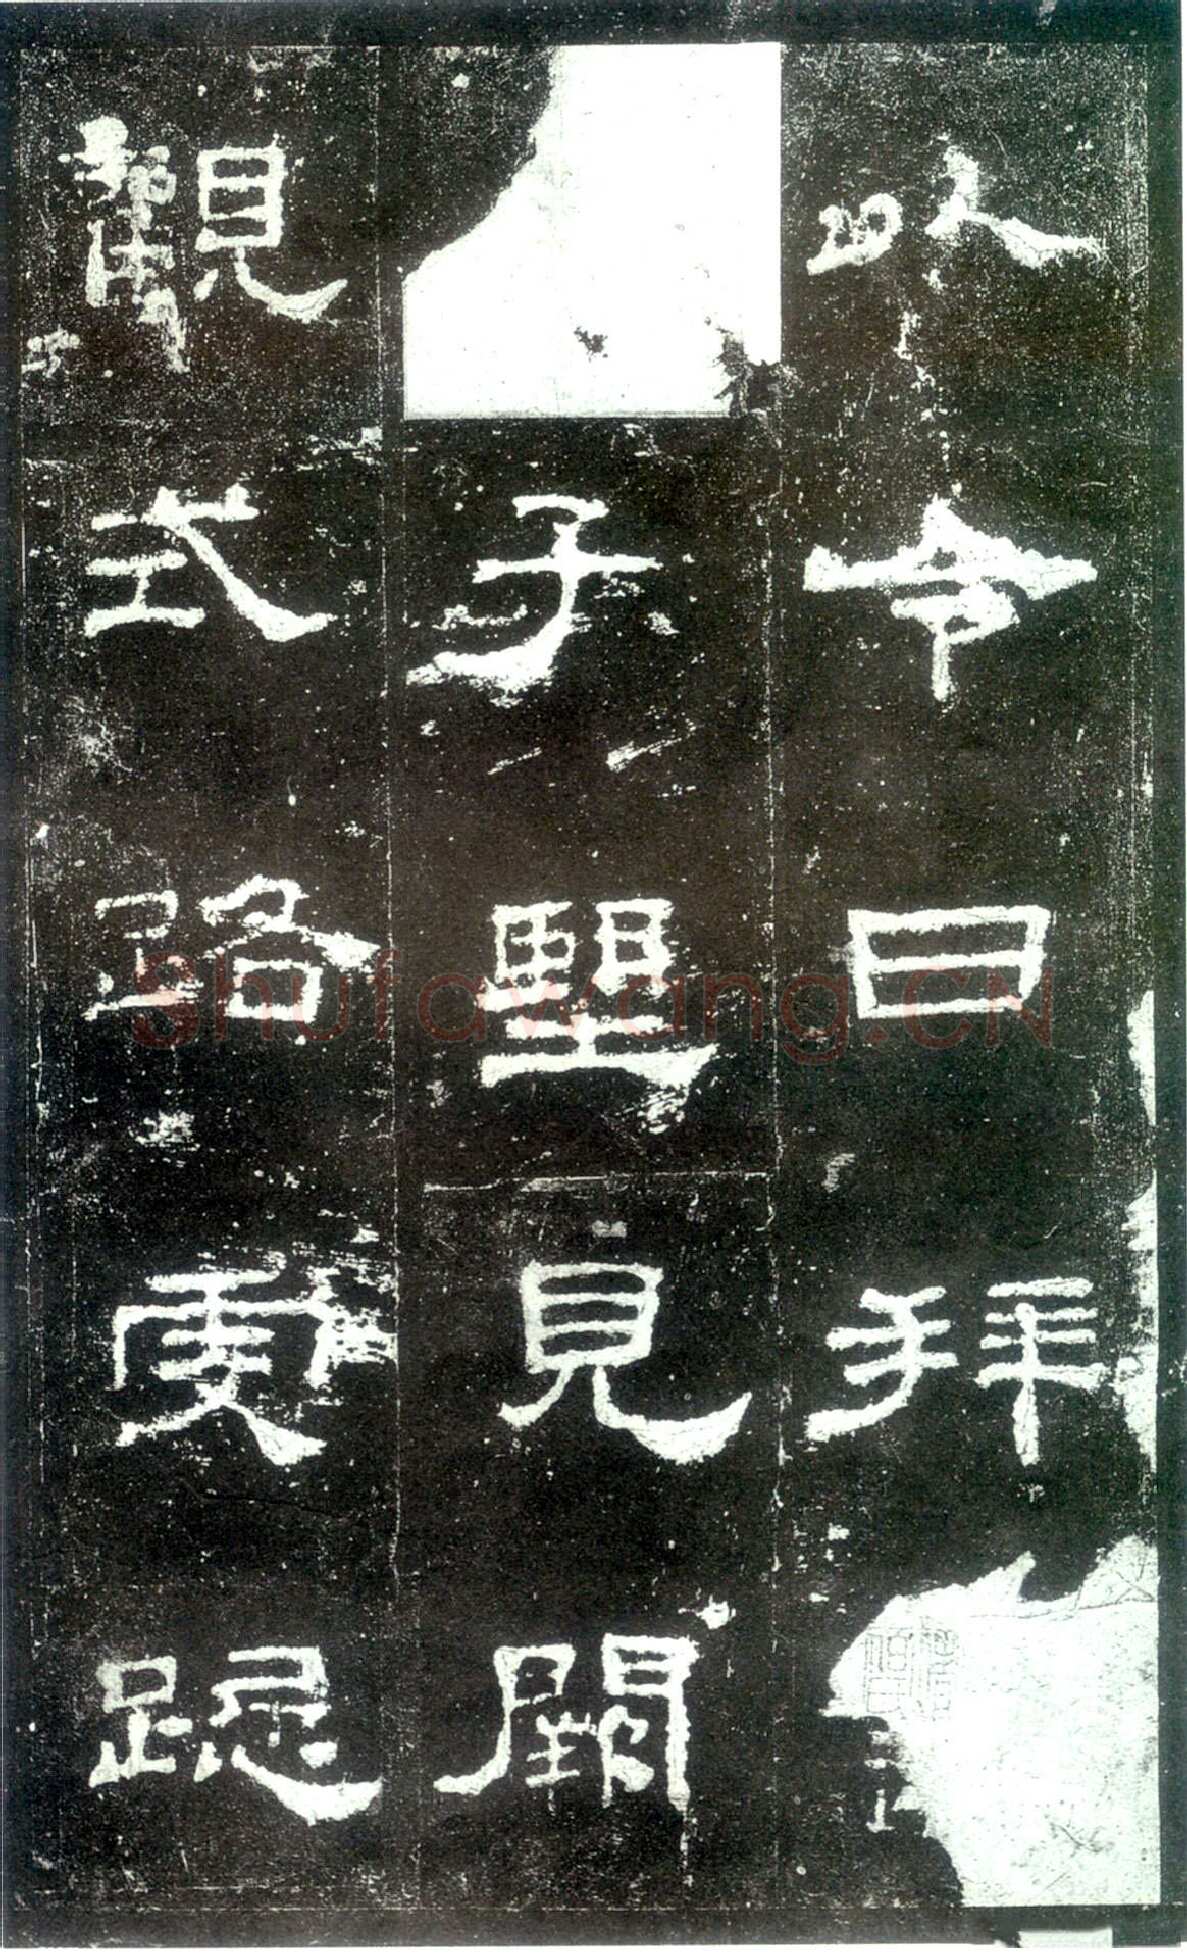 以令日拜
子朢見闕
觀式路虔跽
Shufawang.CN